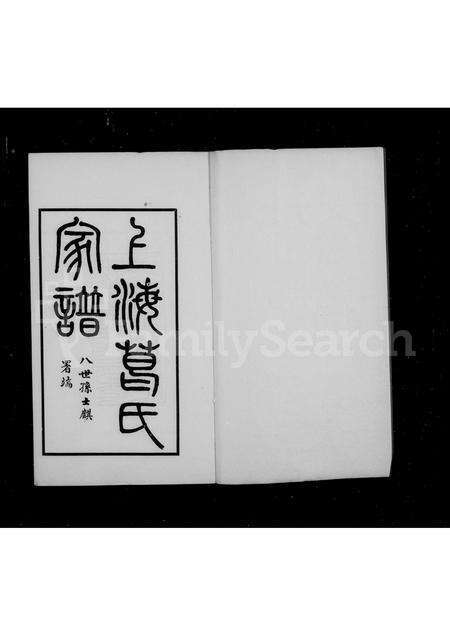 上海葛氏
家譜
八世孫士麒
署端
FamilySearch